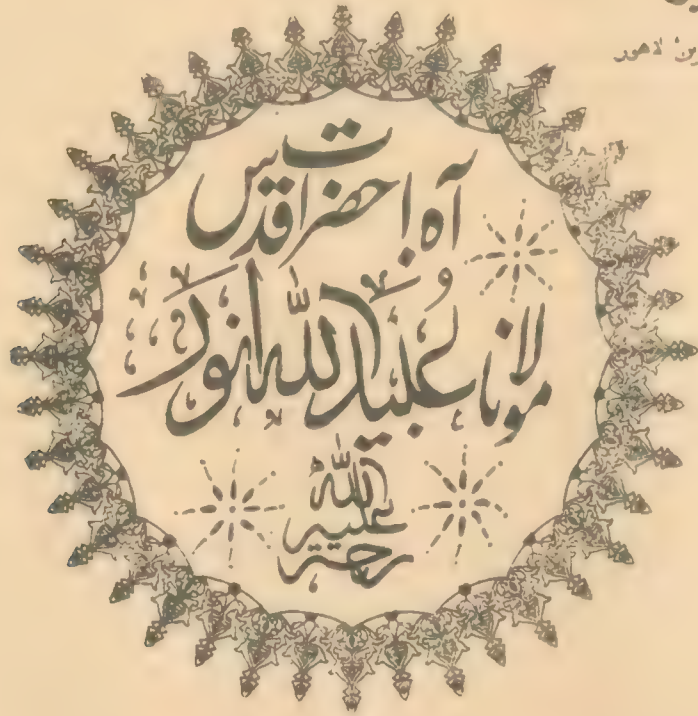 رین' لاهور
آہ! حضرت اقدس
مولانا عُبیداللہ انور
رحمۃ اللہ علیہ